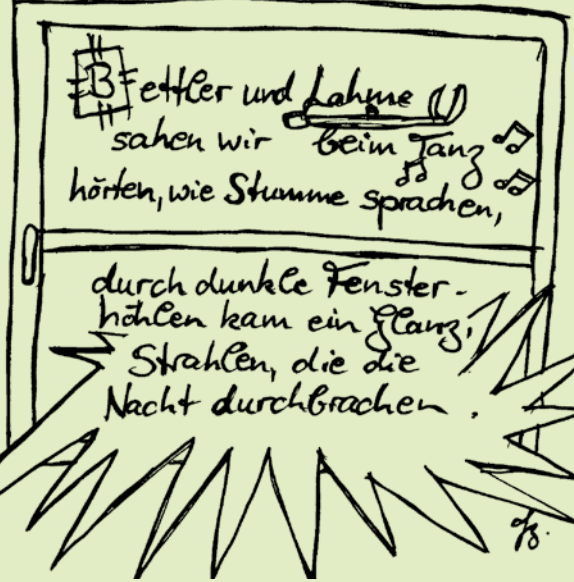 Bettler und Lahme
sahen wir beim Tanz
hörten, wie Stumme sprachen,
durch dunkle Fenster-
höhlen kam ein Glanz,
Strahlen, die die
Nacht durchbrachen.